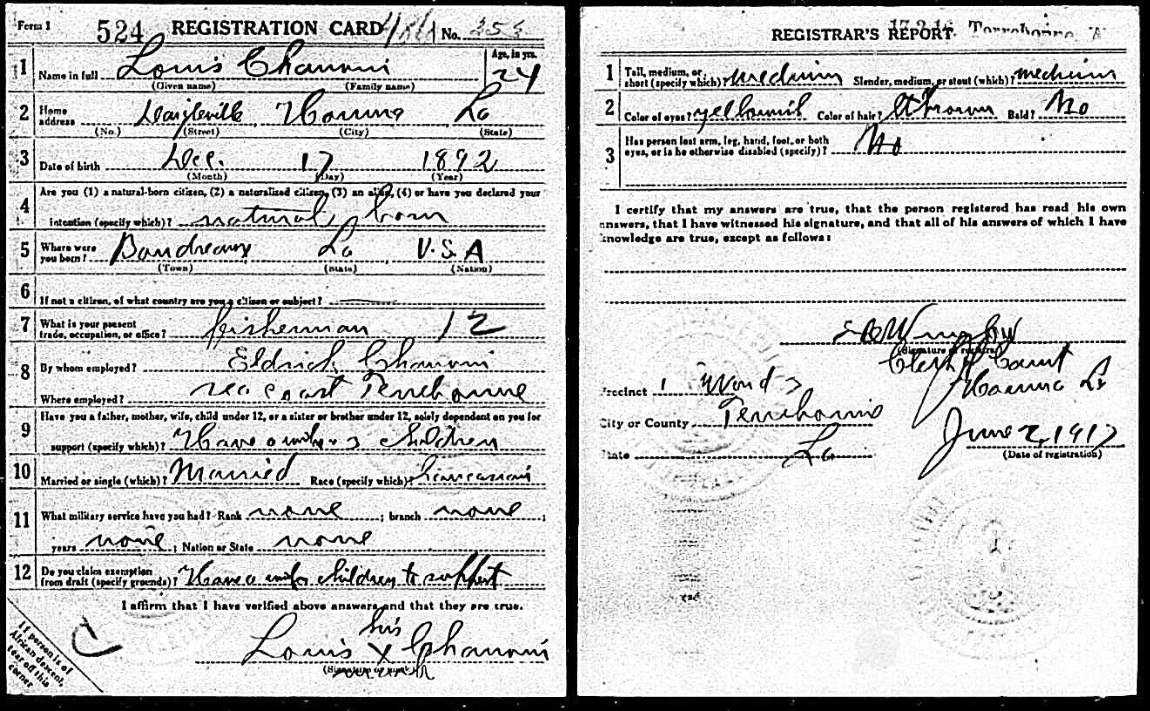 Form 1 524 REGISTRATION CARD No. 353
1 Name in full Louis Chauvin Age, in yrs. 24
(Given name) (Family name)
2 Home address Daigleville Houma La
(No.) (Street) (City) (State)
3 Date of birth Dec. 17 1892
(Month) (Day) (Year)
Are you (1) a natural-born citizen, (2) a naturalized citizen, (3) an alien, (4) or have you declared your
4 intention (specify which)? natural born
5 Where were you born? Boudreaux La U.S.A
(Town) (State) (Nation)
6 If not a citizen, of what country are you a citizen or subject?
7 What is your present trade, occupation, or office? fisherman 12
8 By whom employed? Eldrick Chauvin
Where employed? sea coast Terrebonne
Have you a father, mother, wife, child under 12, or a sister or brother under 12, solely dependent on you for
9 support (specify which)? Have a wife & children
10 Married or single (which)? Married Race (specify which)? Caucasian
11 What military service have you had? Rank none ; branch none ;
years none ; Nation or State none
12 Do you claim exemption from draft (specify grounds)? Have a wife children to support
I affirm that I have verified above answers and that they are true.
his
Louis X Chauvin
(Signature or mark)
mark
If person is of African descent, tear off this corner
C
17-2-16. Terrebonne. A
REGISTRAR'S REPORT
1 Tall, medium, or short (specify which)? medium Slender, medium, or stout (which)? medium
2 Color of eyes? yellowish Color of hair? lt brown Bald? No
3 Has person lost arm, leg, hand, foot, or both eyes, or is he otherwise disabled (specify)? No
I certify that my answers are true, that the person registered has read his own
answers, that I have witnessed his signature, and that all of his answers of which I have
knowledge are true, except as follows:
(Signature of registrar)
Clerk of Court
Precinct 1 Ward 3 Houma La
City or County Terrebonne
State La June 2, 1917
(Date of registration)